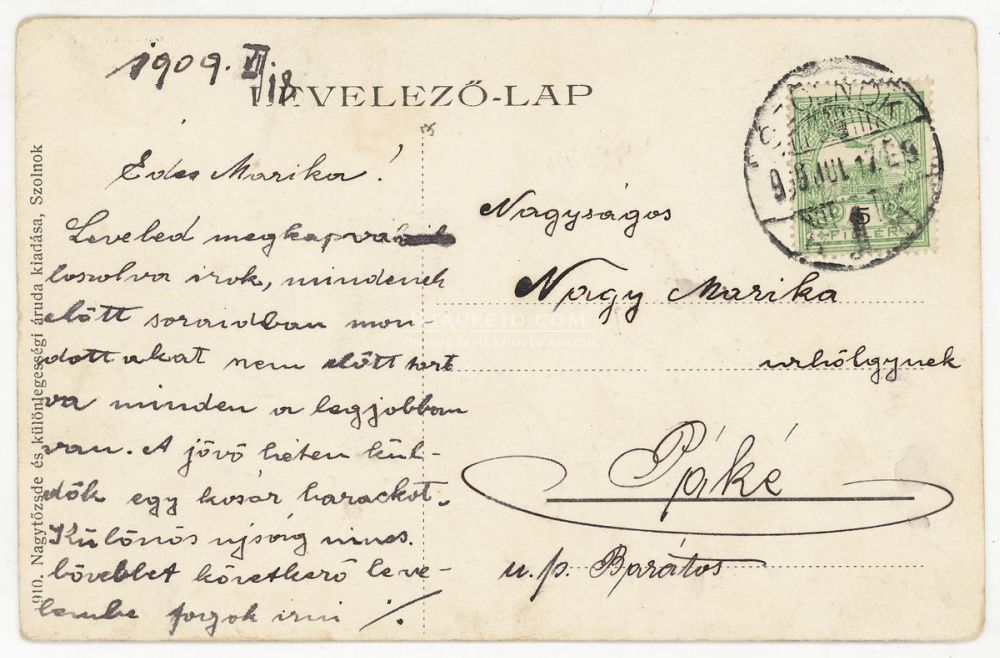 1909. VII/18
LEVELEZŐ-LAP
Édes Marika!
Leveled megkapva
loszolva irok, mindenek
előtt soraidban mon-
dottakat nem előtt tart
va minden a legjobban
van. A jövő héten kül-
dök egy kosár barackot.
Különös ujság nincs.
bővebbet következő leve-
lembe fogok irni
Nagyságos
Nagy Marika
urhölgynek
Páké
u.p. Barátos
910. Nagytőzsde és különlegességi áruda kiadása, Szolnok
SZOLNOK
909 JUL 17 E9
5
FILLÉR
AUKCIO.COM
ONLINE PAPÍRRÉGISÉG AUKCIÓ